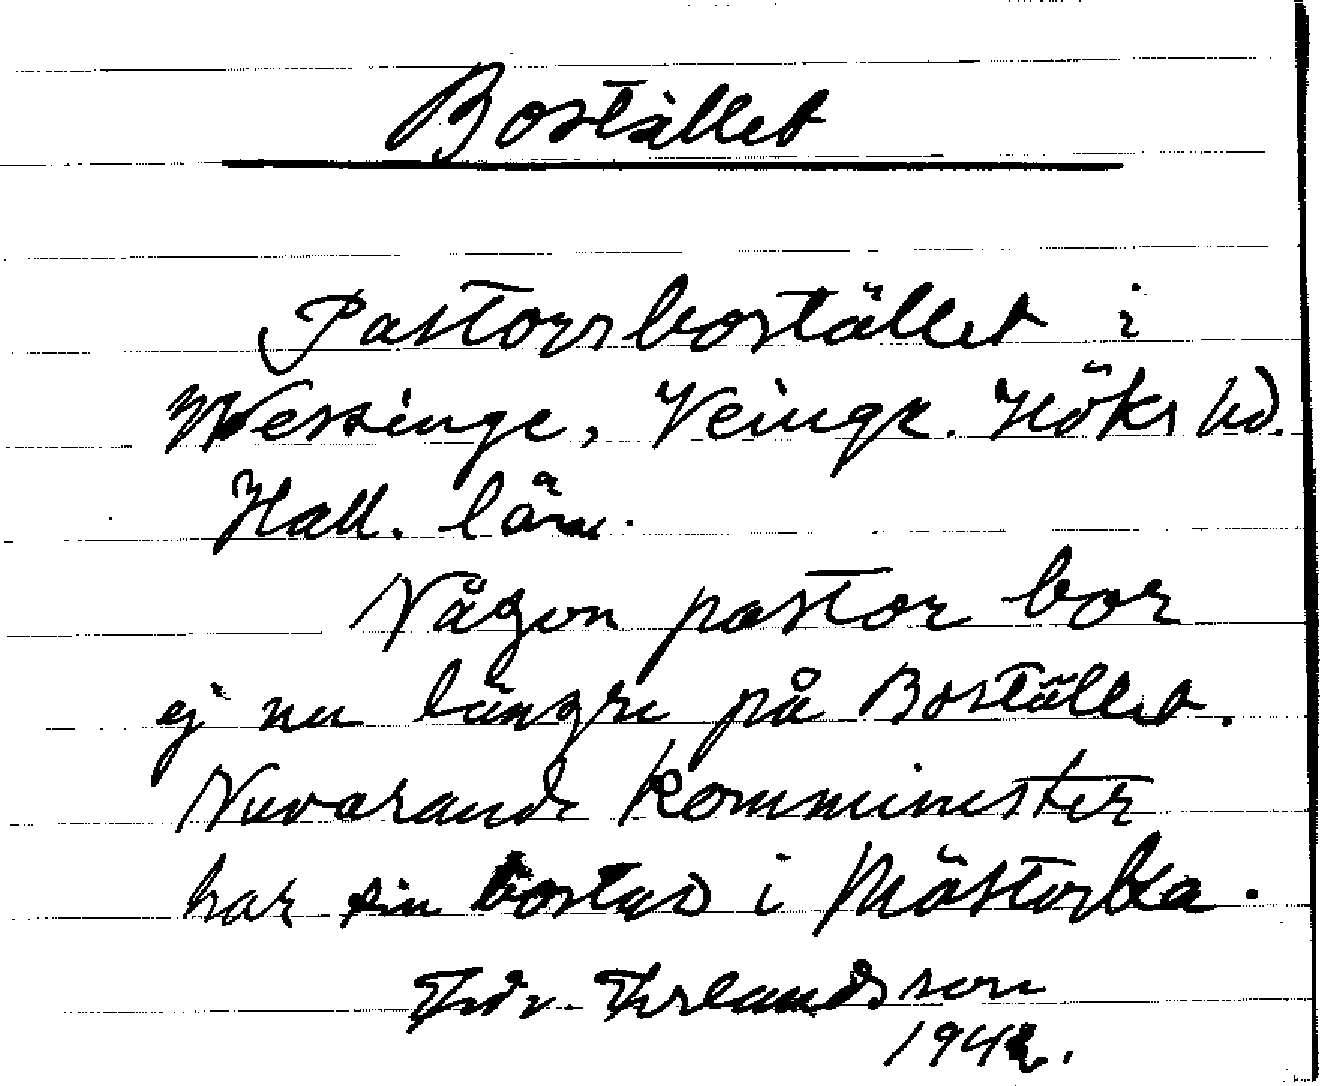 Bostället
Pastorsbostället i
Wessinge, Veinge. Höks hd.
Hall. län.
Någon pastor bor
ej nu längre på Bostället.
Nuvarande Komminister
har sin bostad i Mästocka.
Edv. Erlandsson
1942.